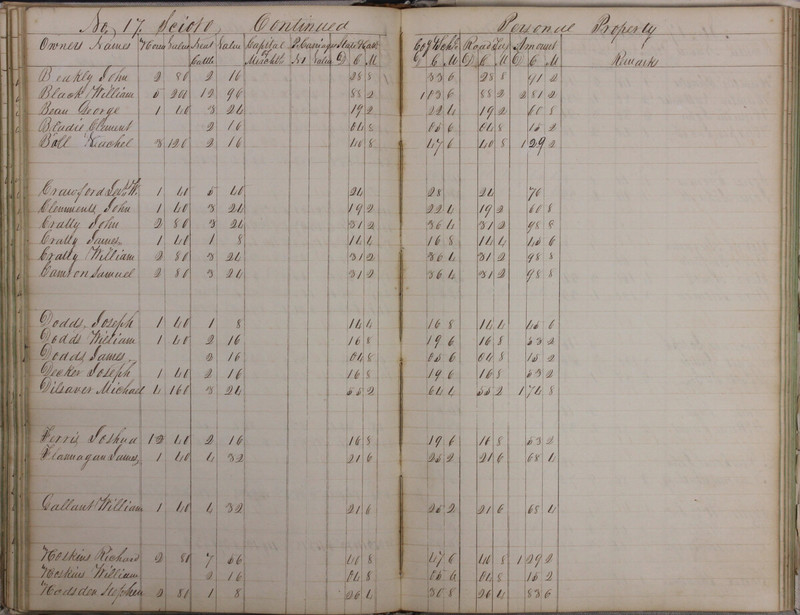 No. 17 Scioto Continued Personal Property
Owners Names Horses Value Neat Cattle Value Capital of Merchts P. Carriages No Value State & Canl D C M Coy & Schl D C M Road Tax D C M Amount D C M Remarks
John 2 80 2 16 28 8 33 6 28 8 91 2
Black William 5 200 12 96 88 2 1 03 6 88 2 2 81 2
Bean George 1 40 3 24 19 2 22 4 19 2 60 8
Bladie Clement 2 16 04 8 05 6 04 8 15 2
Ball Rachel 3 120 2 16 40 8 47 6 40 8 1 29 2
Crawford W. 1 40 5 40 24 28 24 76
Clemments John 1 40 3 24 19 2 22 4 19 2 60 8
Cratty John 2 80 3 24 31 2 36 4 31 2 98 8
Cratty James 1 40 1 8 14 4 16 8 14 4 45 6
Cratty William 2 80 3 24 31 2 36 4 31 2 98 8
Cameron Samuel 2 80 3 24 31 2 36 4 31 2 98 8
Dodds Joseph 1 40 1 8 14 4 16 8 14 4 45 6
Dodds William 1 40 2 16 16 8 19 6 16 8 53 2
Dodds James 2 16 04 8 05 6 04 8 15 2
Decker Joseph 1 40 2 16 16 8 19 6 16 8 53 2
Dilsaver Michael 4 160 3 24 55 2 64 4 55 2 1 74 8
Ferris Joshua 40 2 16 16 8 19 6 16 8 53 2
Flannagan James 1 40 4 32 21 6 25 2 21 6 68 4
Gallant William 1 40 4 32 21 6 25 2 21 6 68 4
Hoskins Richard 2 80 7 56 40 8 47 6 40 8 1 29 2
Hoskins William 2 16 04 8 05 6 04 8 15 2
Hodsdon Stephen 2 80 1 8 26 4 30 8 26 4 83 6